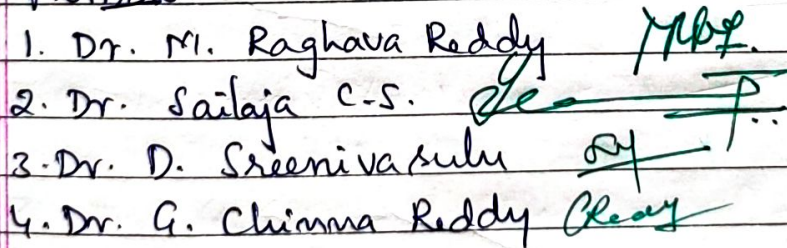 1. Dr. M. Raghava Reddy
2. Dr. Sailaja C.S.
3. Dr. D. Sreenivasulu
4. Dr. G. Chinna Reddy